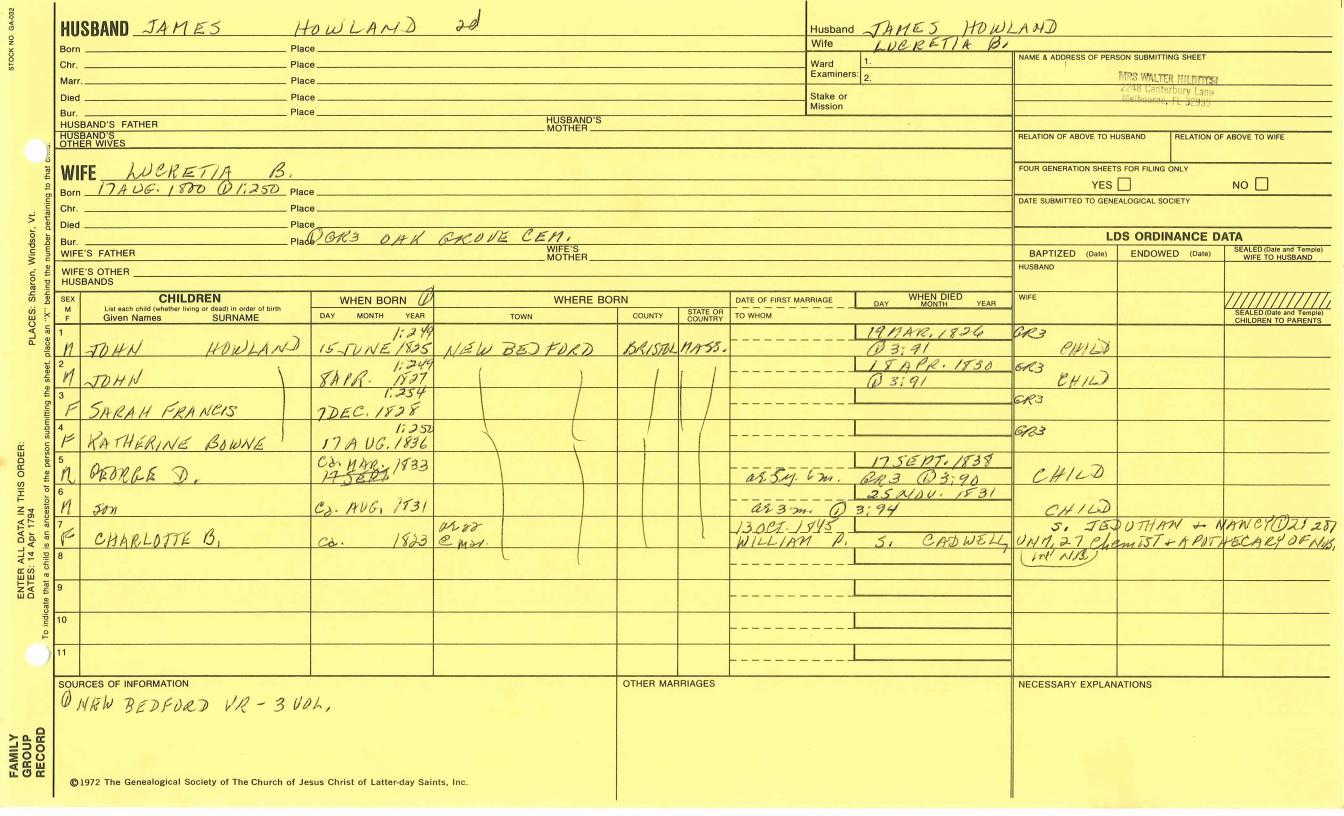 STOCK NO. GA-032
HUSBAND JAMES HOWLAND 2d
Born Place
Chr. Place
Marr. Place
Died Place
Bur. Place
HUSBAND'S FATHER HUSBAND'S MOTHER
HUSBAND'S OTHER WIVES
Husband JAMES HOWLAND
Wife LUCRETIA B.
Ward Examiners: 1.
2.
Stake or Mission
NAME & ADDRESS OF PERSON SUBMITTING SHEET
MRS WALTER
2248 Canterbury Lane
Melbourne, FL 32935
RELATION OF ABOVE TO HUSBAND RELATION OF ABOVE TO WIFE
FOUR GENERATION SHEETS FOR FILING ONLY
YES NO
DATE SUBMITTED TO GENEALOGICAL SOCIETY
WIFE LUCRETIA B.
Born 17 AUG. 1800 ① 1:250 Place
Chr. Place
Died Place
Bur. Place ① GR3 OAK GROVE CEM.
WIFE'S FATHER WIFE'S MOTHER
WIFE'S OTHER HUSBANDS
LDS ORDINANCE DATA
BAPTIZED (Date) ENDOWED (Date) SEALED (Date and Temple) WIFE TO HUSBAND
HUSBAND
WIFE
SEALED (Date and Temple) CHILDREN TO PARENTS
SEX M F CHILDREN WHEN BORN ① WHERE BORN DATE OF FIRST MARRIAGE WHEN DIED
List each child (whether living or dead) in order of birth
Given Names SURNAME DAY MONTH YEAR TOWN COUNTY STATE OR COUNTRY TO WHOM DAY MONTH YEAR
1 1:249 19 MAR. 1826 GR3
M JOHN HOWLAND 15 JUNE 1825 NEW BEDFORD BRISTOL MASS. ① 3:91 CHILD
2 1:249 18 APR. 1830 GR3
M JOHN 8 APR. 1827 ① 3:91 CHILD
3 1:254 GR3
F SARAH FRANCIS 7 DEC. 1828
4 1:250 GR3
F KATHERINE BOWNE 17 AUG. 1836
5 Ca. MAR. 1833 17 SEPT. 1838
M GEORGE D. 17 SEPT. ae 5y. 6m. GR3 ① 3:90 CHILD
6 25 NOV. 1831
M son Ca. AUG. 1831 ae 3m. ① 3:94 CHILD
7 ae 22 13 OCT. 1845 S. JEDUTHAN & NANCY ① 2:287
F CHARLOTTE B. Ca. 1823 @ mar. WILLIAM P. S. CADWELL, UNM, 27 Chemist & APOTHECARY OF N.B.
8 (int N.B.)
9
10
11
SOURCES OF INFORMATION OTHER MARRIAGES NECESSARY EXPLANATIONS
① NEW BEDFORD VR - 3 VOL.
©1972 The Genealogical Society of The Church of Jesus Christ of Latter-day Saints, Inc.
FAMILY GROUP RECORD
ENTER ALL DATA IN THIS ORDER:
DATES: 14 Apr 1794 PLACES: Sharon, Windsor, Vt.
To indicate that a child is an ancestor of the person submitting the sheet, place an "X" behind the number pertaining to that child.